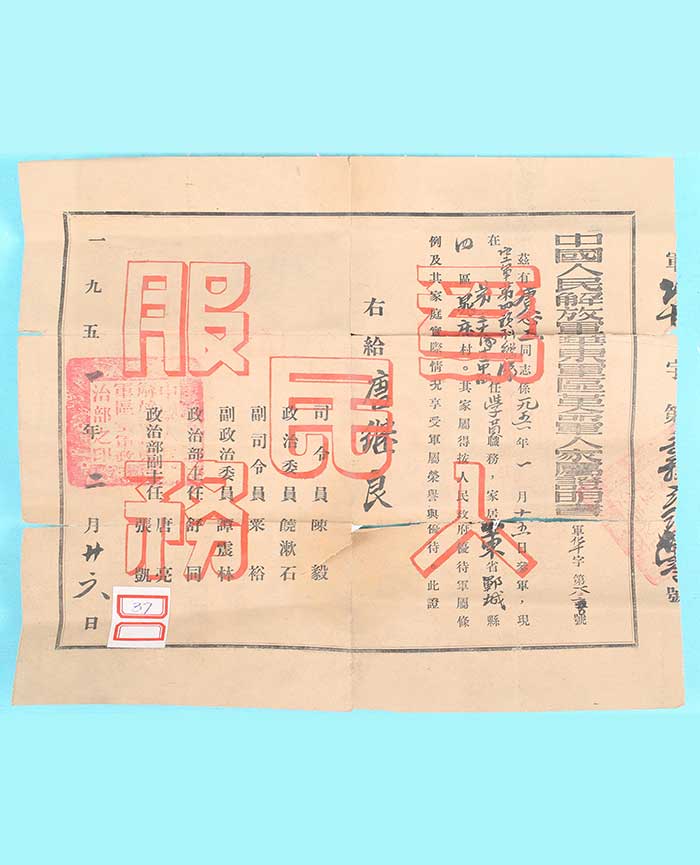 中國人民解放軍華東軍區革命軍人家屬證明書
軍華字第號
茲有唐同志係一九五一年一月十五日參軍，現
在空軍第四預科總隊
任學員職務，家居山東省鄆城縣
四區村。其家屬得按人民政府優待軍屬條
例及其家庭實際情況享受軍屬榮譽與優待。此證
右給唐繼良
司令員陳毅
政治委員饒漱石
副司令員粟裕
副政治委員譚震林
政治部主任舒同
政治部副主任唐亮
張凱
一九五一年二月廿六日
為人民服務
軍字第號
37